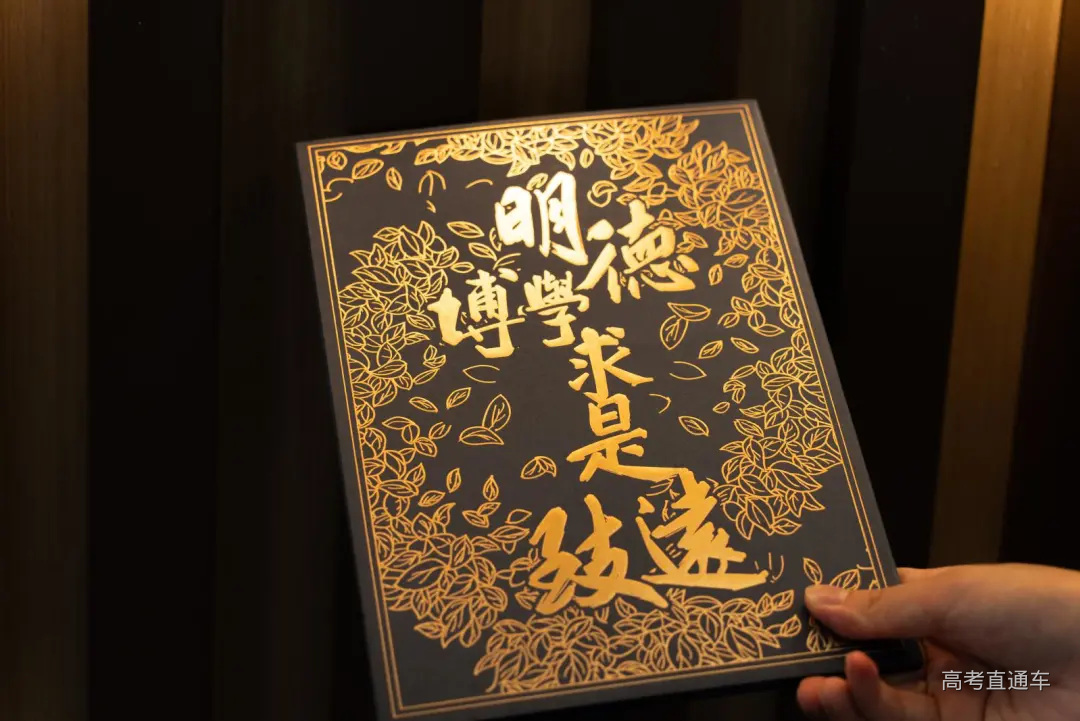 明德
博學
求是
致遠
高考直通车